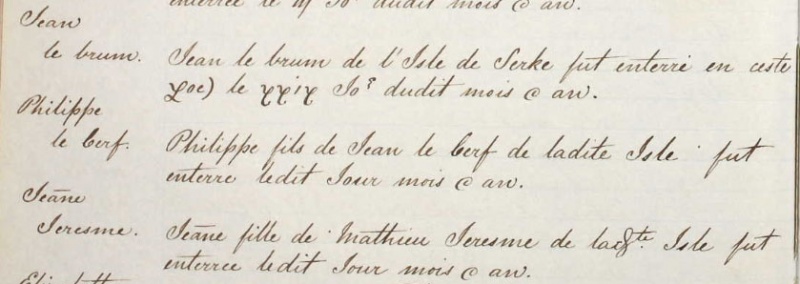 enterrée le dudit mois @ an.
Jean
le brum. Jean le brum de l'Isle de Serke fut enterré en ceste
poe) le xxix Jor dudit mois @ an.
Philippe
le Cerf. Philippe fils de Jean le Cerf de ladite Isle fut
enterre ledit Jour mois @ an.
Jeāne
Jeresme. Jeāne fille de Mathieu Jeresme de lad.te Isle fut
enterree ledit Jour mois @ an.